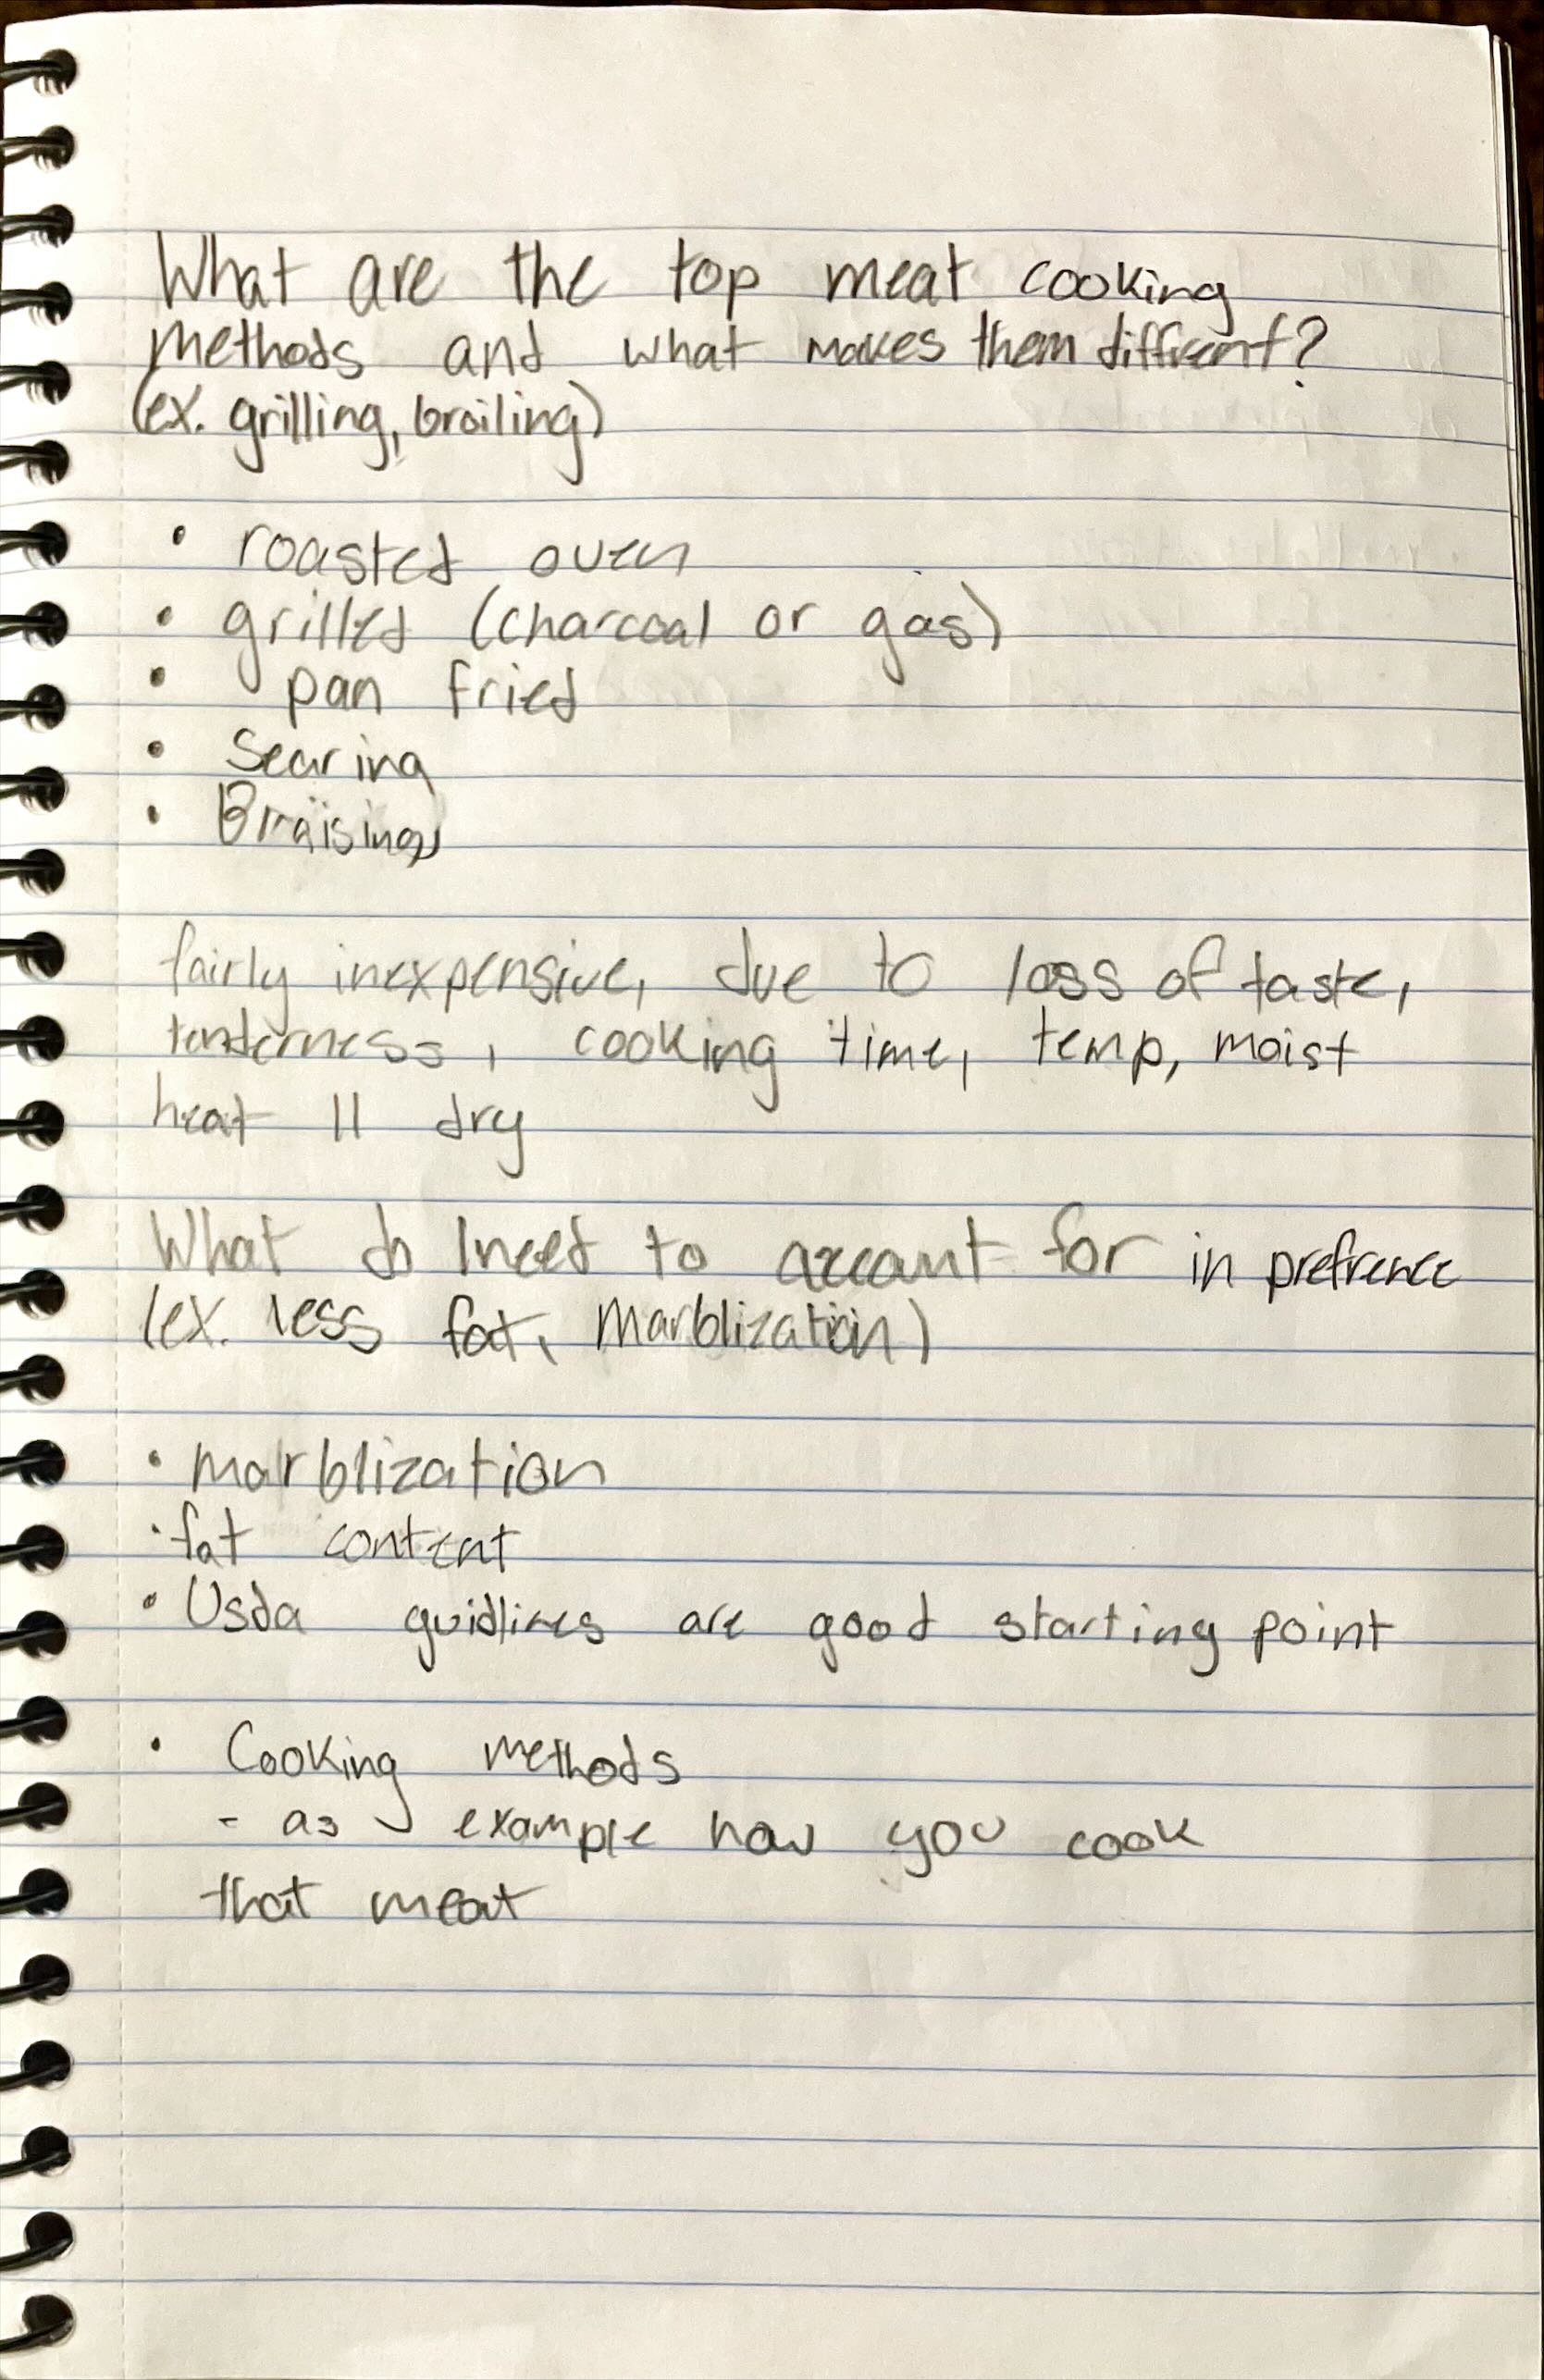 What are the top meat cooking
methods and what makes them diffrent?
(ex. grilling, broiling)
• roasted oven
• grilled (charcoal or gas)
• pan fried
• Searing
• Braising
fairly inexpensive, due to loss of taste,
tenderness, cooking time, temp, moist
heat || dry
What do I need to account for in prefrence
(ex. less fat, Marblization)
• marblization
• fat content
• Usda guidlines are good starting point
• Cooking methods
- as example how you cook
that meat